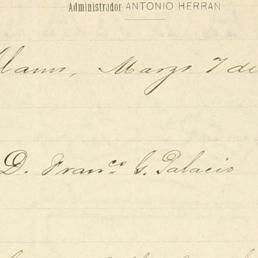 Administrador ANTONIO HERRAN
Marzo 7 de
D. Franco. G. Palacio